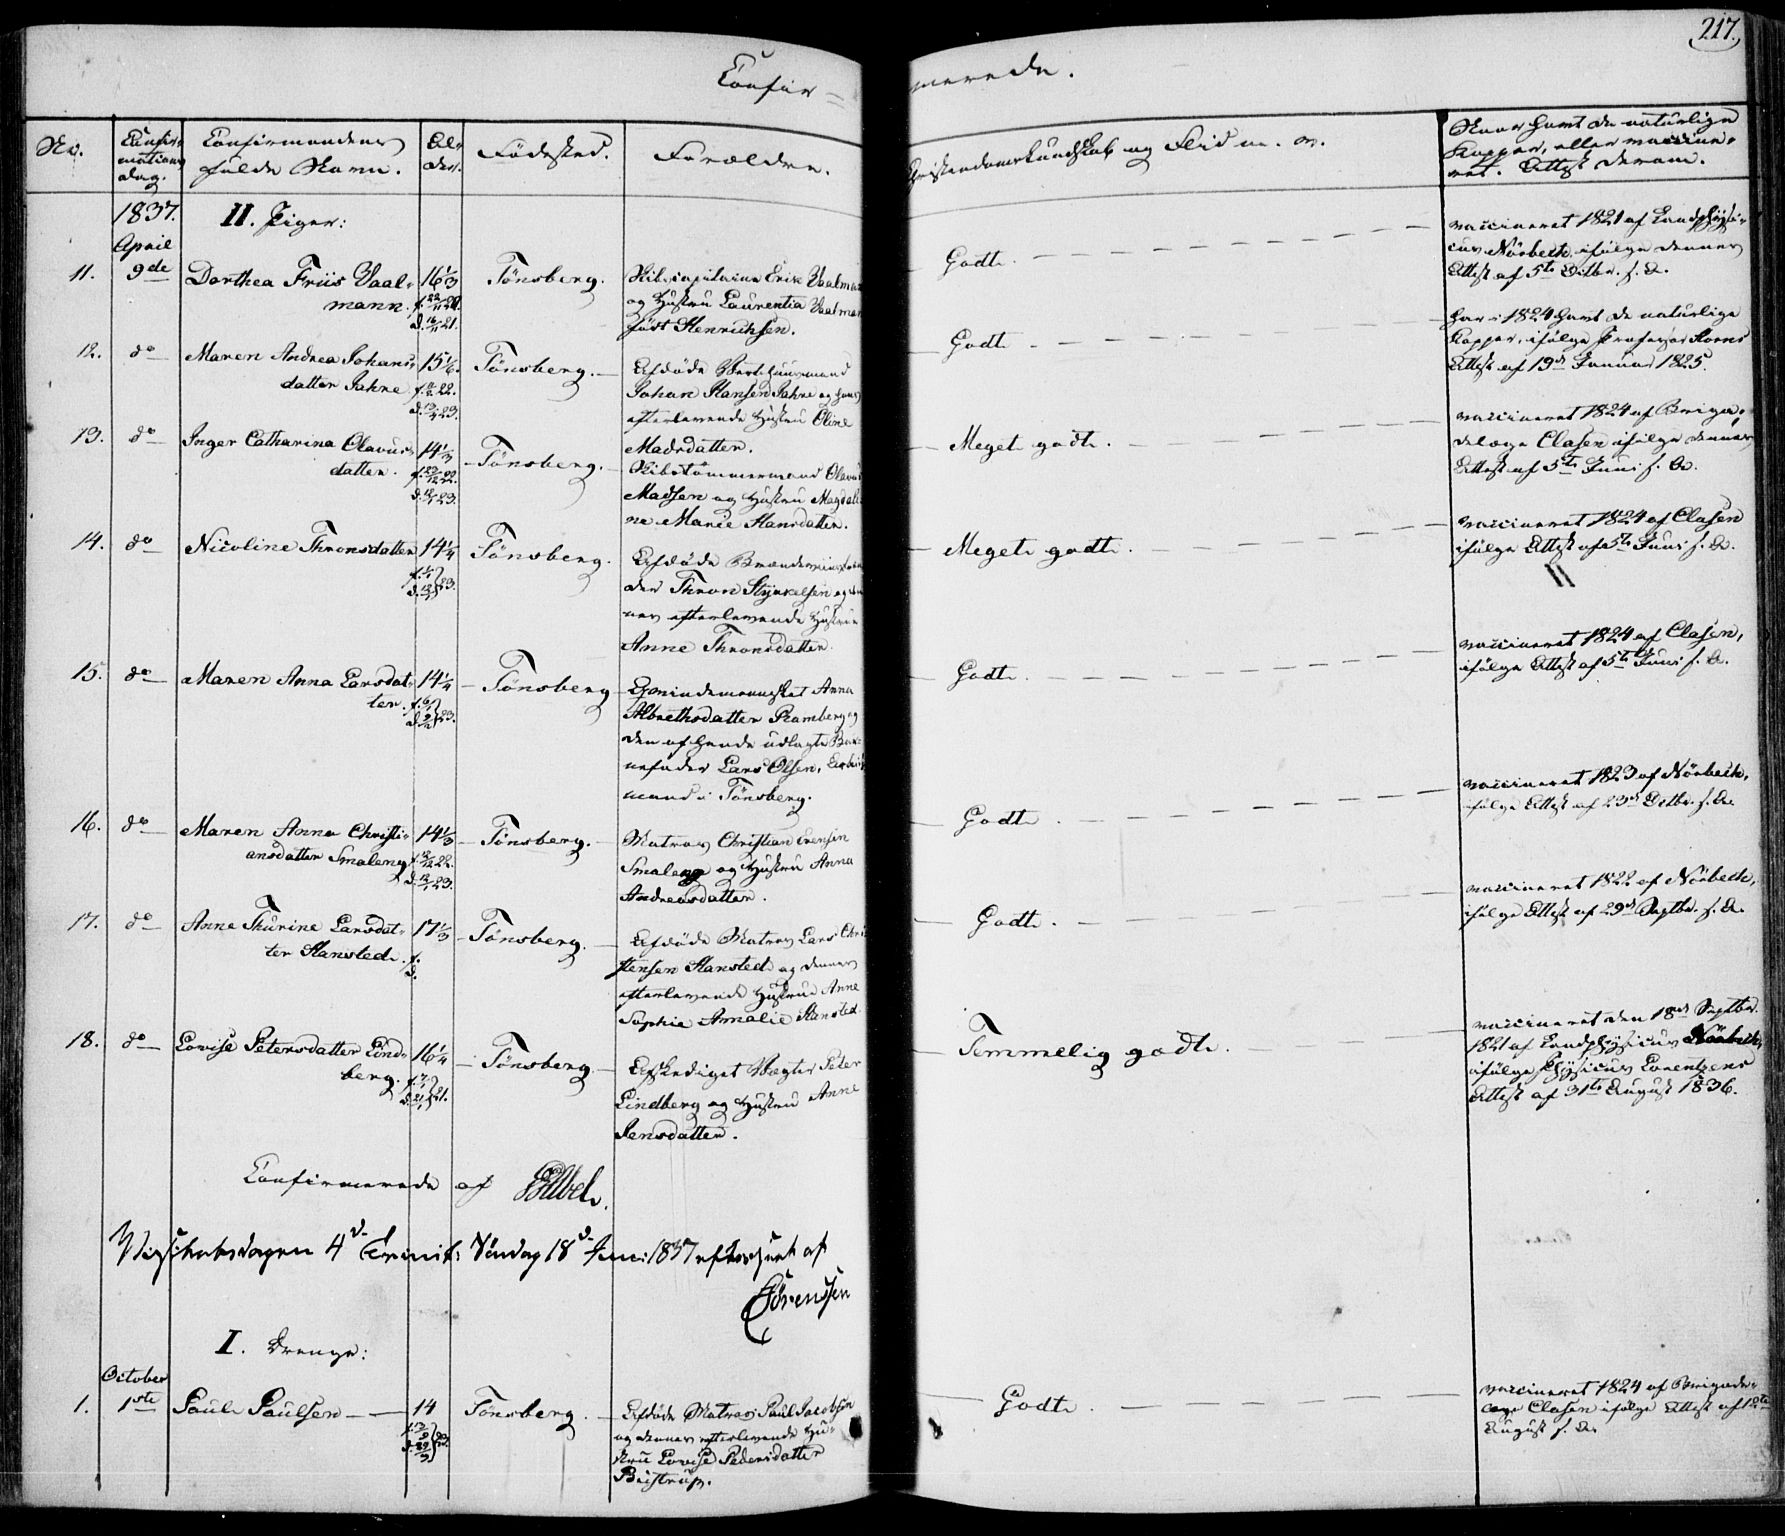 217.
Confir=
merede.
No.
Confir-
mations
dag.
Confirmandens
fulde Navn.
Al-
der.
Fødested.
Forældre.
Christendomskundskab og Flid m. v.
Naar havt de naturlige
Kopper, eller vaccine-
ret. Attest derom.
1837.
II. Piger:
April
11. 9de Dorthea Friis Vaal-
mann.
16 1/3
Tønsberg.
Skibscapitaine Erik Vaalman
og Hustru Laurentia Vaalman
født Henrichsen.
Godt.
vaccineret 1821 af Landphysi-
cus Nörbech, ifølge dennes
Attest af 5te Octbr. s. A.
12. do Maren Andrea Johans-
datter Jahre
15 1/6.
Tønsberg.
Afdøde
Johan Hansen Jahre og hans
efterlevende Hustru Oline
Madsdatter.
Godt
har i 1824 havt de naturlige
Kopper, ifølge Professor Horns
Attest af 19de Januar 1825.
13. do Inger Catharina Olavus-
datter.
14 1/3
Tønsberg.
Skibstömmermand Olavus
Madsen og Hustru Magdale
ne Marie Hansdatter.
Meget godt.
vaccineret 1824 af Briga-
delæge Clasen ifølge dennes
Attest af 5te Juni s. A.
14. do Nicoline Thronsdatter
14 1/4
Tönsberg.
Afdøde
der Thron Styrkelsen og den
nes efterlevende Hustrue
Anne Thronsdatter.
Meget godt.
vaccineret 1824 af Clasen
ifølge Attest af 5te Juni s. A.
15. do Maren Anna Larsdat-
ter.
14 1/4
Tønsberg
Qvindemennesket Anna
Albrethsdatter Ramberg og
den af hende udlagte Bar-
nefader Lars Olsen, Arbeids
mand i Tönsberg.
Godt.
vaccineret 1824 af Clasen,
ifølge Attest af 5te Juni s. A.
16. do Maren Anna Christi-
ansdatter Smaleng
14 1/3
Tönsberg.
Matros Christian Evensen
Smaleng og Hustru Anna
Andreasdatter.
Godt
vaccineret 1823 af Nörbech,
ifølge Attest af 23de Octbr. s. A.
17. do Anne Thurine Larsdat-
ter Hansted.
17 1/3
f.
d.
Tønsberg.
Afdøde Matros Lars Chri
stensen Hansted og dennes
efterlevende Hustrue Anne
Sophie Amalie Hansted.
Godt.
vaccineret 1822 af Nörbech,
ifølge Attest af 29de Septbr. s. A.
18. do Lovise Petersdatter Lind-
berg.
16 1/4
Tønsberg
Afskediget Vægter Peter
Lindberg og Hustru Anne
Jensdatter.
Temmelig godt.
vaccineret den 18de Septbr.
1821 af Landphysicus Nörbech,
ifølge Physicus Lorentzens
Attest af 31te August 1836.
Confirmerede af
Visitatsdagen 4de Trinit: Söndag 18de Juni 1837 efterseet af
Sörenssen
I. Drenge:
October
1. 1ste Paul Paulsen
14
Tønsberg.
Afdöde Matros Paul Jacobsen
og dennes efterlevende Hu-
stru Lovise Pedersdatter
Bistrup.
Godt.
vaccineret 1824 af Brigade-
læge Clasen ifølge Attest af 18de
August s. A.